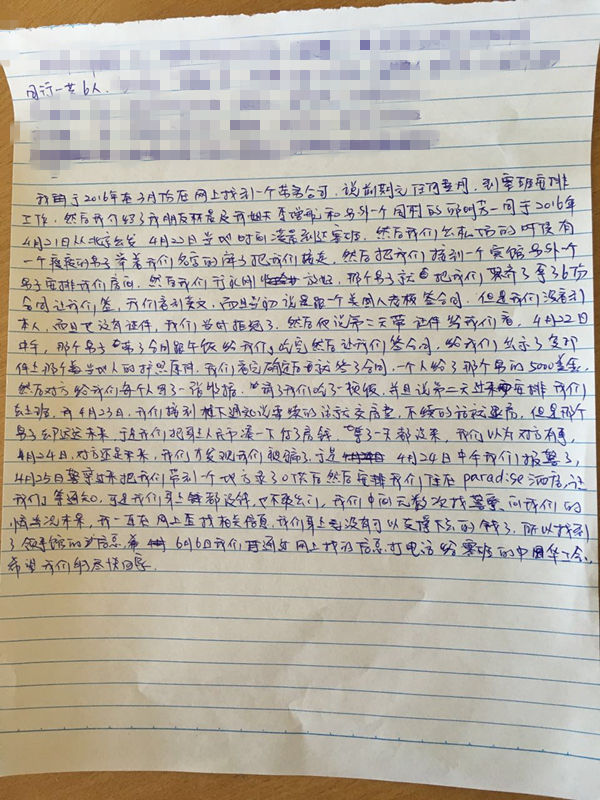 同行一共6人.
我由于2016年在3月份在网上找到一个劳务公司，说前期无任何费用，到塞班安排
工作，然后我们经了我朋友 和另外一个同村的 一同于2016年
4月21日从北京出发 4月22日当地时间凌晨到达塞班，然后我们出机场的时候有
一个瘦瘦的男子举着我们名字的牌子把我们接走，然后把我们接到一个宾馆另外一个
男子安排我们房间，然后我们行李刚 放好，那个男子就把我们 拿了6份
合同让我们签，我们看到英文，而且当初说是跟一个美国人老板签合同，但是我们没看到
本人，而且也没有证件，我们当时拒绝了，然后他说第二天带证件给我们看，4月22日
中午，那个男子带了合同跟午饭给我们，吃完然后让我们签合同，给我们出示了复印
件上那个当地人的护照原件，我们看完确认后就签了合同，一个人给了那个男的5000美金，
然后对方给我们每个人写了一张收据，请我们吃了顿饭，并且说第二天 安排我们
去上班，我4月23日，我们接到楼下通知说要续的话就交房费，不续的话就退房，但是那个
男子却迟迟未来，于是我们把身上人民币凑一下付了房钱，等了一天都没来，我们以为对方有事，
4月24日，对方还是未来，我们才发现我们被骗了，于是 4月24日中午我们报警了，
4月25日警察过来把我们带到一个地方录了口供后然后安排我们住在paradise酒店，让
我们等通知，可是我们身上钱都没钱，也不敢出门，我们中间无数次找警察问我们的
，我一直在网上查找相关信息，我们身上也没有可以支撑下去的钱了，所以找到
了领事馆的 信息 6月6日我们通过网上找的信息打电话给塞班的中国华人会，
希望我们能尽快回家.